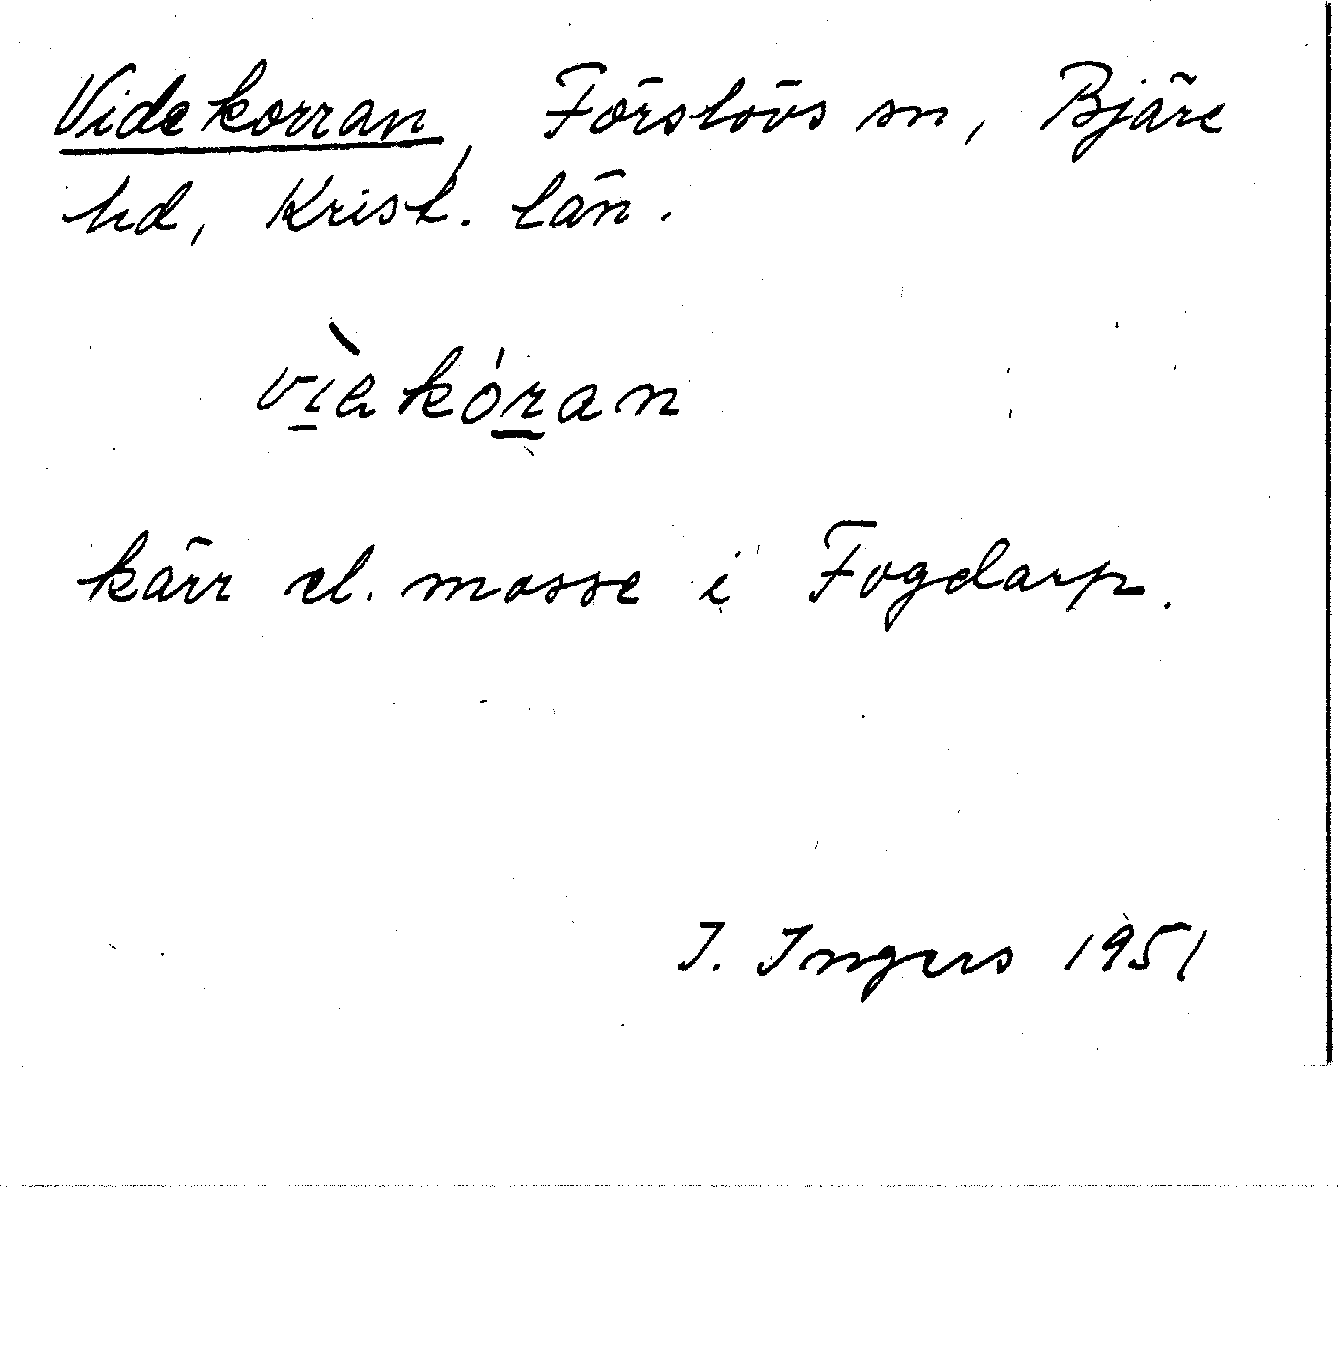 Videkorran, Förslövs sn, Bjäre
hd, Krist. län.
vìəkóran
kärr el. mosse i Fogdarp.
I. Ingers 1951